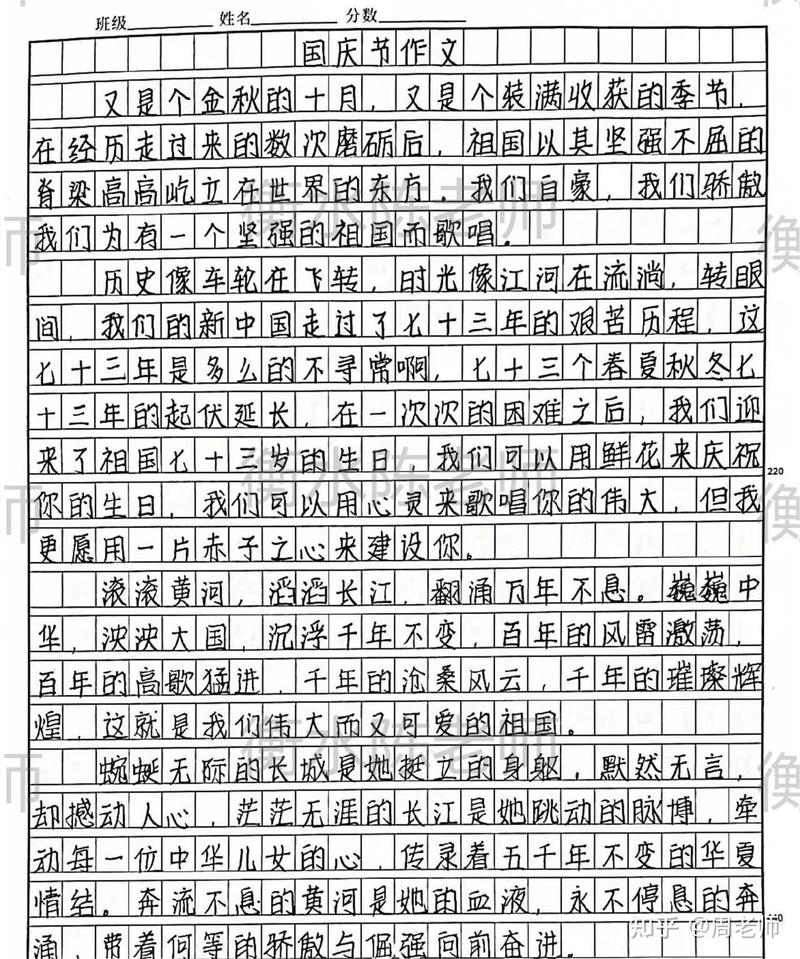 班级 姓名 分数
国庆节作文
又是个金秋的十月，又是个装满收获的季节，
在经历走过来的数次磨砺后，祖国以其坚强不屈的
脊梁高高屹立在世界的东方。我们自豪，我们骄傲
我们为有一个坚强的祖国而歌唱。
历史像车轮在飞转，时光像江河在流淌，转眼
间，我们的新中国走过了七十三年的艰苦历程，这
七十三年是多么的不寻常啊，七十三个春夏秋冬七
十三年的起伏延长，在一次次的困难之后，我们迎
来了祖国七十三岁的生日，我们可以用鲜花来庆祝
220
你的生日，我们可以用心灵来歌唱你的伟大，但我
更愿用一片赤子之心来建设你。
滚滚黄河，滔滔长江，翻涌万年不息。巍巍中
华，泱泱大国，沉浮千年不变，百年的风雷激荡，
百年的高歌猛进，千年的沧桑风云，千年的璀璨辉
煌，这就是我们伟大而又可爱的祖国。
蜿蜒无际的长城是她挺立的身躯，默然无言，
却撼动人心，茫茫无涯的长江是她跳动的脉搏，牵
动每一位中华儿女的心，传录着五千年不变的华夏
情结。奔流不息的黄河是她的血液，永不停息的奔
涌，带着何等的骄傲与倔强向前奋进。
衡水陈老师
衡水陈老师
衡水陈老师
知乎 @周老师